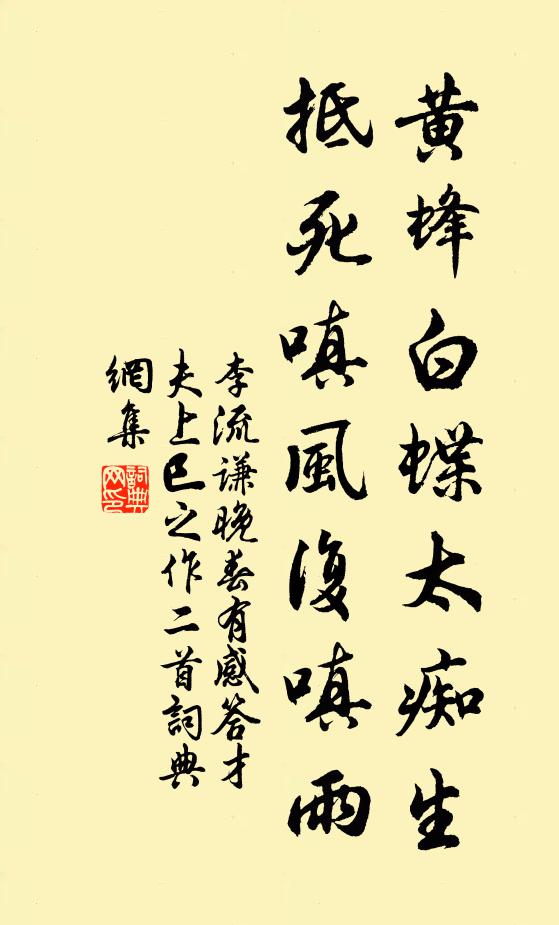 黃蜂白蝶太痴生
抵死嗔風復嗔雨
李流謙晚春有感答才
夫上巳之作二首詞典
網集
詞典網印